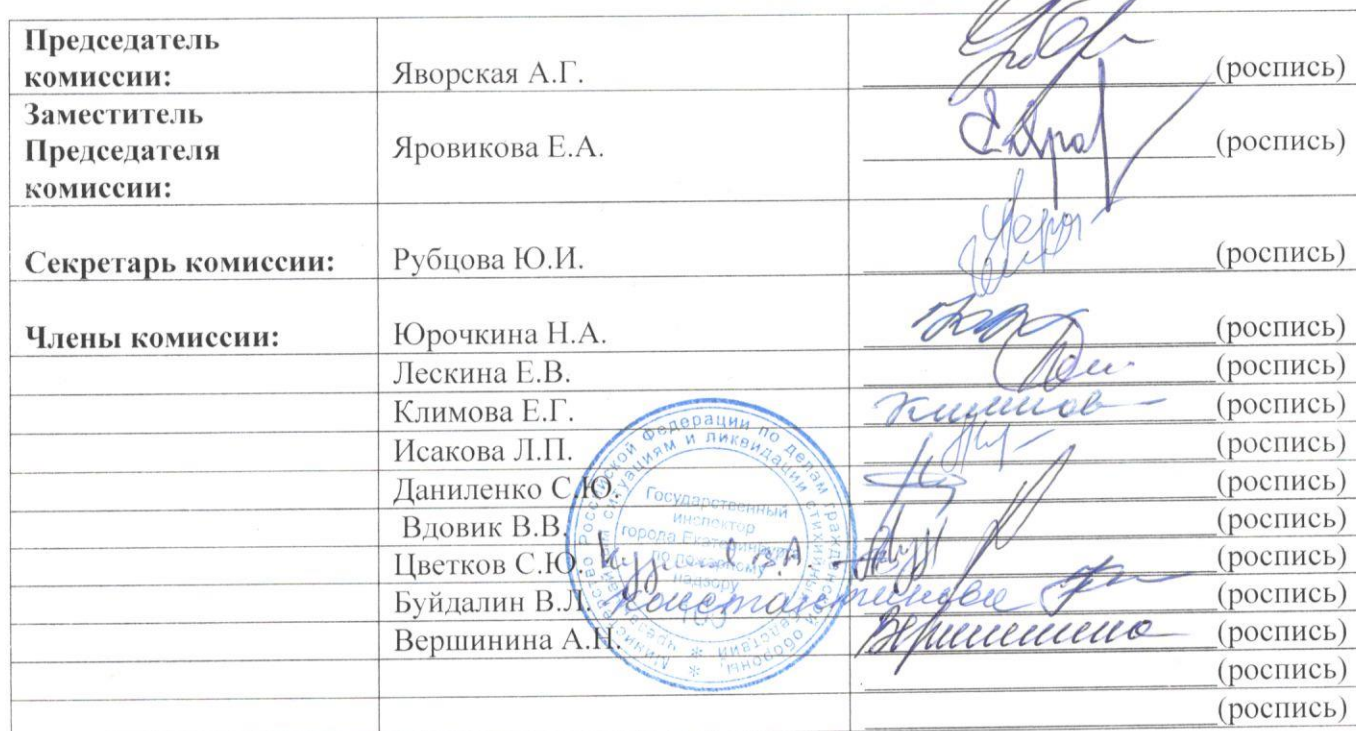 Председатель
комиссии: Яворская А.Г. (роспись)
Заместитель
Председателя Яровикова Е.А. (роспись)
комиссии:
Секретарь комиссии: Рубцова Ю.И. (роспись)
Члены комиссии: Юрочкина Н.А. (роспись)
Лескина Е.В. (роспись)
Климова Е.Г. Климов (роспись)
Исакова Л.П. (роспись)
Даниленко С.Ю. (роспись)
Вдовик В.В. (роспись)
Цветков С.Ю. (роспись)
Буйдалин В.Л. Константинова (роспись)
Вершинина А.Н. Вершинина (роспись)
(роспись)
(роспись)
Российской Федерации по делам гражданской обороны
ситуациям и ликвидации стихийных бедствий
Государственный
инспектор
города Екатеринбурга
по пожарному
надзору